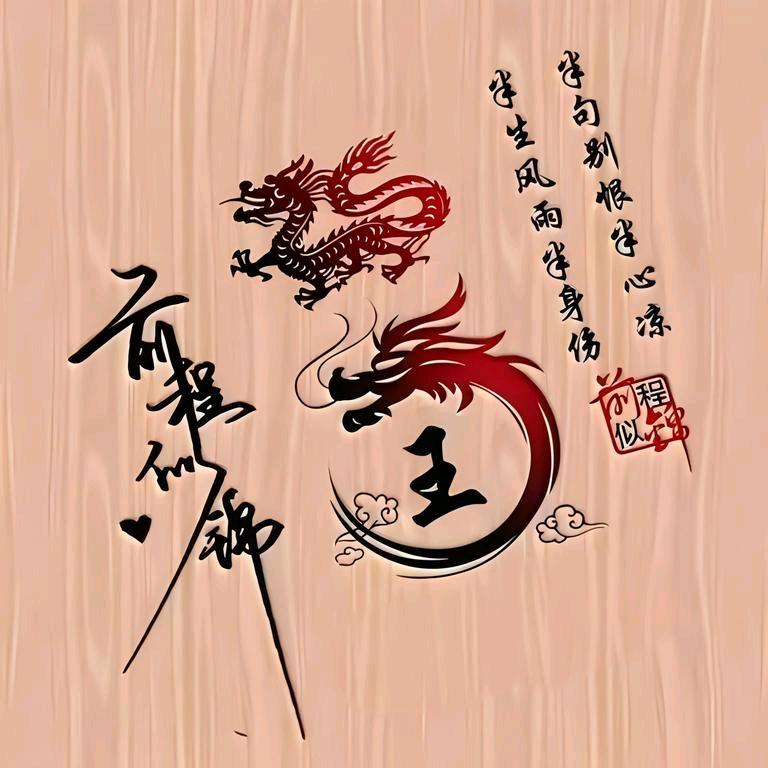 半句别恨半心凉
半生风雨半身伤
前程似锦
王
前程似锦